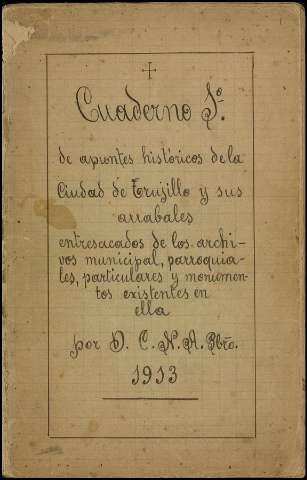 Cuaderno 1º
de apuntes históricos de la
Ciudad de Trujillo y sus
arrabales
entresacados de los archi-
vos municipal, parroquia-
les, particulares y monumen-
tos existentes en
ella
por D. C. N. A. Pbrō.
1913